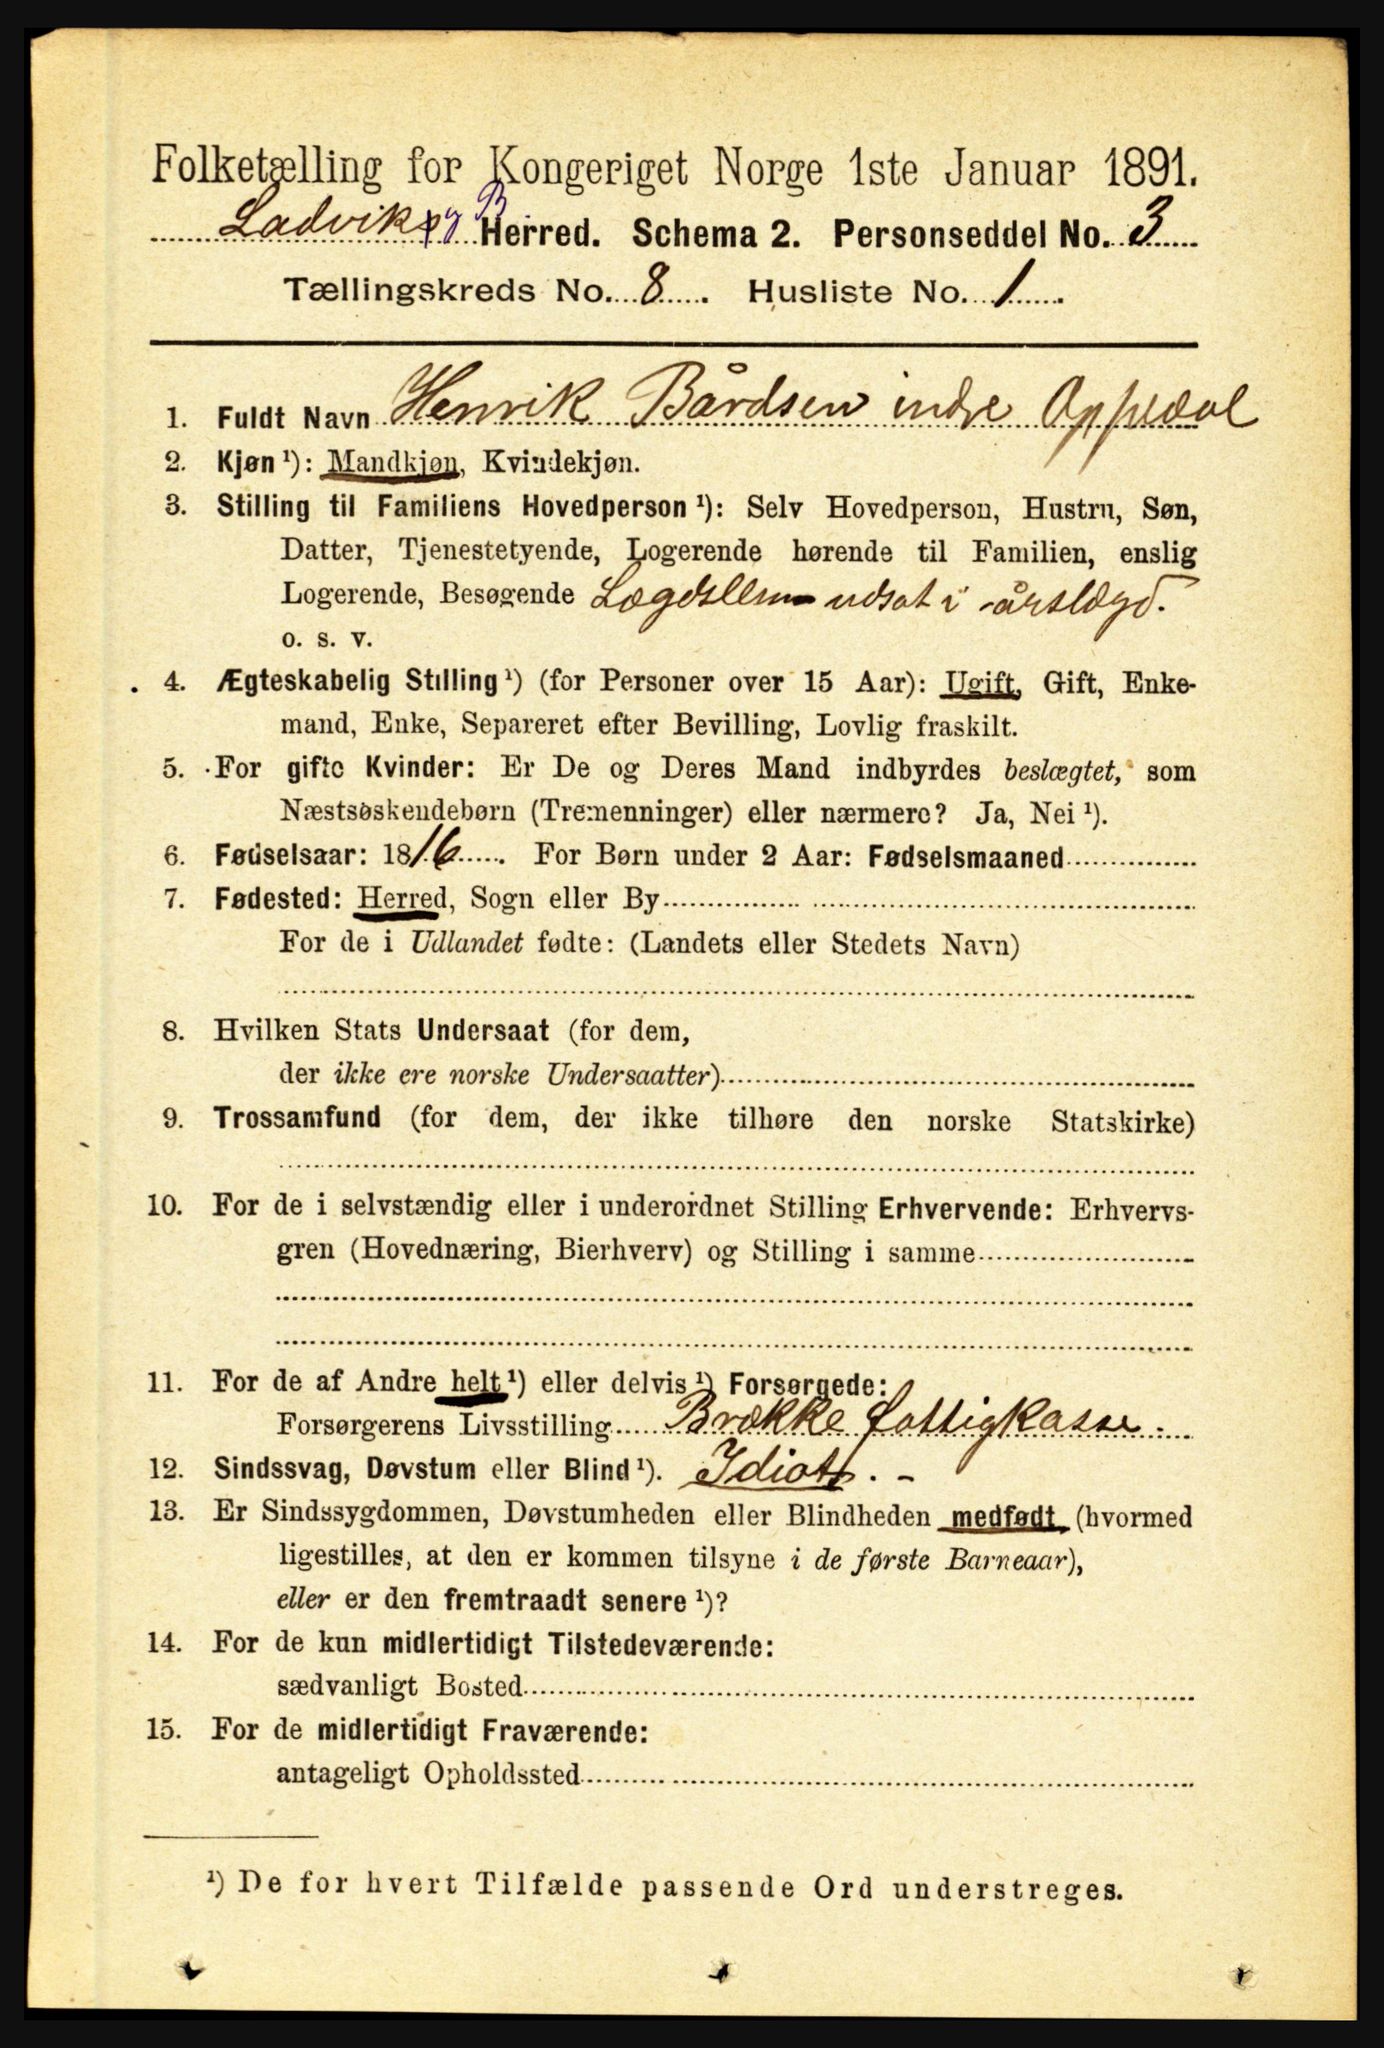 Folketælling for Kongeriget Norge 1ste Januar 1891.
Ladvik og B. Herred. Schema 2. Personseddel No. 3
Tællingskreds No. 8. Husliste No. 1.
1. Fuldt Navn Henrik Bårdsen indre Oppedal
2. Kjøn ¹): Mandkjøn, Kvindekjøn.
3. Stilling til Familiens Hovedperson ¹): Selv Hovedperson, Hustru, Søn,
Datter, Tjenestetyende, Logerende hørende til Familien, enslig
Logerende, Besøgende Lægdslem udsat i årslægd.
o. s. v.
4. Ægteskabelig Stilling ¹) (for Personer over 15 Aar): Ugift, Gift, Enke-
mand, Enke, Separeret efter Bevilling, Lovlig fraskilt.
5. For gifte Kvinder: Er De og Deres Mand indbyrdes beslægtet, som
Næstsøskendebørn (Tremenninger) eller nærmere? Ja, Nei ¹).
6. Fødselsaar: 1816. For Børn under 2 Aar: Fødselsmaaned
7. Fødested: Herred, Sogn eller By
For de i Udlandet fødte: (Landets eller Stedets Navn)
8. Hvilken Stats Undersaat (for dem,
der ikke ere norske Undersaatter)
9. Trossamfund (for dem, der ikke tilhøre den norske Statskirke)
10. For de i selvstændig eller i underordnet Stilling Erhvervende: Erhvervs-
gren (Hovednæring, Bierhverv) og Stilling i samme
11. For de af Andre helt ¹) eller delvis ¹) Forsørgede:
Forsørgerens Livsstilling Brække fattigkasse.
12. Sindssvag, Døvstum eller Blind ¹). Idiot. -
13. Er Sindssygdommen, Døvstumheden eller Blindheden medfødt (hvormed
ligestilles, at den er kommen tilsyne i de første Barneaar),
eller er den fremtraadt senere ¹)?
14. For de kun midlertidigt Tilstedeværende:
sædvanligt Bosted
15. For de midlertidigt Fraværende:
antageligt Opholdssted
¹) De for hvert Tilfælde passende Ord understreges.